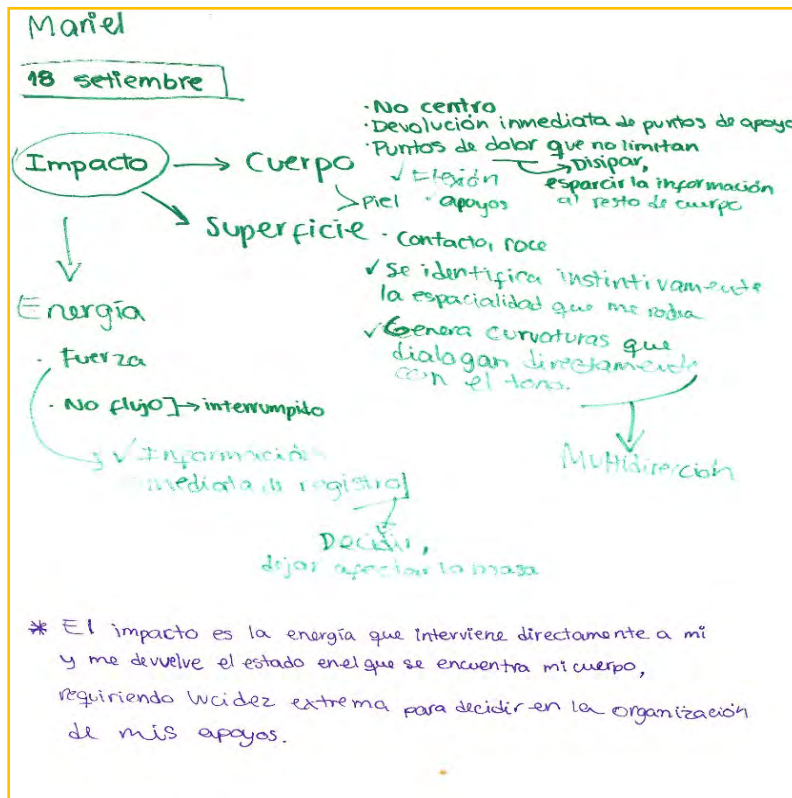 Mariel
18 setiembre
Impacto → Cuerpo
· No centro
· Devolución inmediata de puntos de apoyo
· Puntos de dolor que no limitan
→ Disipar,
esparcir la información
al resto de cuerpo
✓ Flexión
> Piel · apoyos
Superficie · contacto, roce
✓ Se identifica instintivamente
la espacialidad que me rodea
✓ Genera curvaturas que
dialogan directamente
con el tono.
Multidirección
Energía
· Fuerza
· No flujo] → interrumpido
✓ Información
inmediata registro]
Decidir,
dejar afectar la masa
* El impacto es la energía que interviene directamente a mi
y me devuelve el estado en el que se encuentra mi cuerpo,
requiriendo lucidez extrema para decidir en la organización
de mis apoyos.